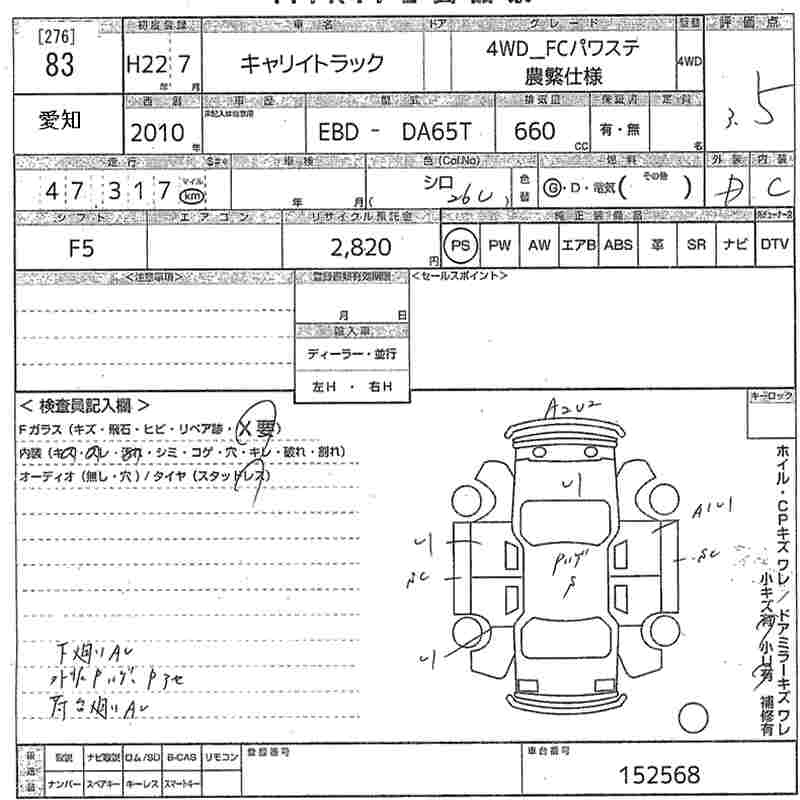 [276]
83
初度登録 車名 ドア グレード 評価点
H22年 7月 キャリイトラック 4WD_FCパワステ 農繁仕様 4WD
3.5
愛知
車歴 型式 排気量 保証書 定員
2010年 EBD - DA65T 660CC 有・無 名
走行 車検 色(Col.No) 燃料 外装 内装
47317 マイル km 年 月 ( シロ 26U ) 色替 G・D・電気( その他 ) D C
シフト エアコン リサイクル預託金 純正装備品
F5 2,820円 PS PW AW エアB ABS 革 SR ナビ DTV
<注意事項> 登録書類有効期限 <セールスポイント>
月 日
輸入車
ディーラー・並行
左H ・ 右H
< 検査員記入欄 >
キーロック
Fガラス (キズ・飛石・ヒビ・リペア跡・X要)
内装 (キズ・スレ・汚れ・シミ・コゲ・穴・キレ・破れ・割れ)
オーディオ (無し・穴) / タイヤ (スタッドレス)
A2U2
U1
A1U1
U1
SC
SC
Pハゲ
S
U1
ホイル・CPキズ ワレ / ドアミラーキズ ワレ
小キズ有 / 小U有 補修有
下廻りAU
荷台廻りAU
取説 ナビ取説 ロム/SD B-CAS リモコン 登録番号 車台番号
ナンバー スペアキー キーレス スマートキー 152568